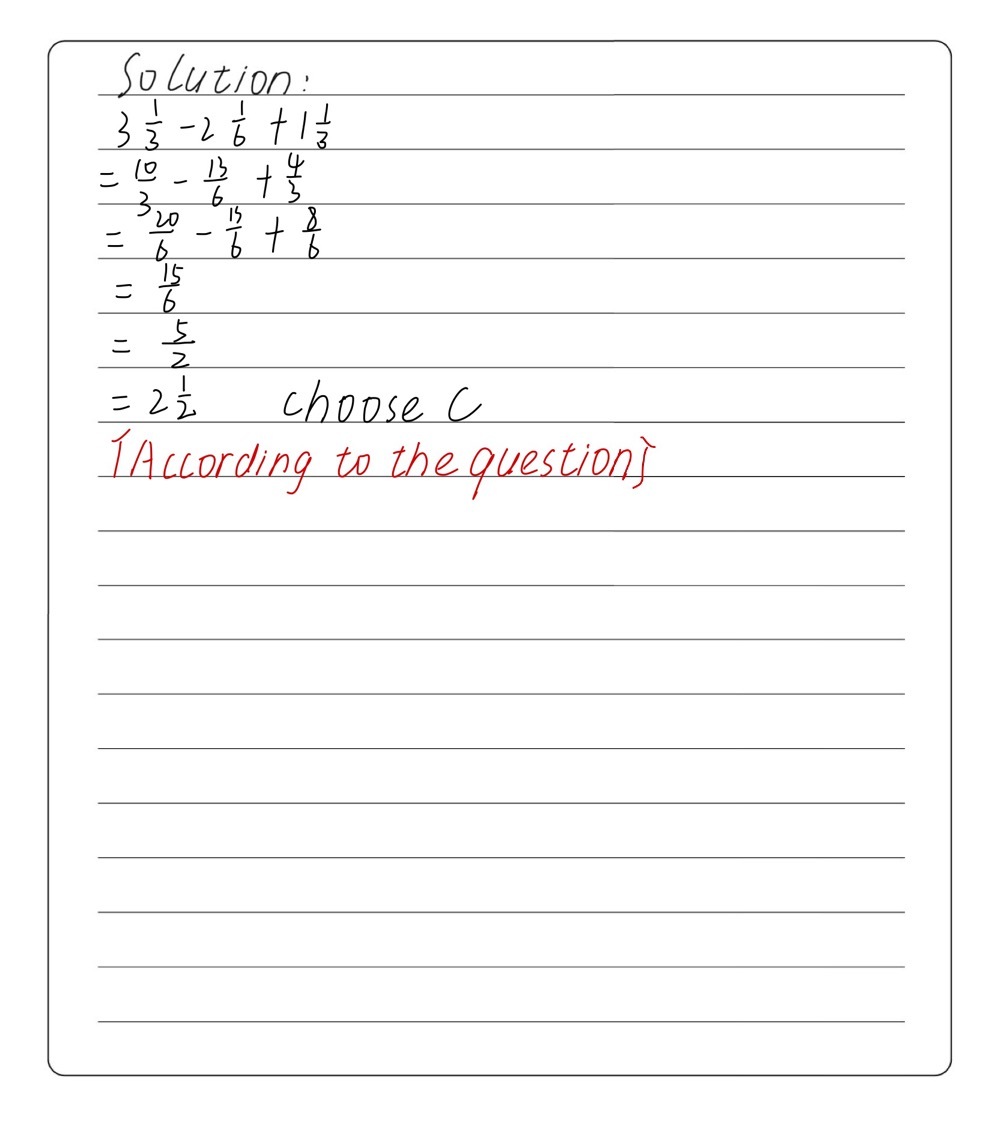 Solution:
3 1/3 - 2 1/6 + 1 1/3
= 10/3 - 13/6 + 4/3
= 20/6 - 13/6 + 8/6
= 15/6
= 5/2
= 2 1/2 choose C
[According to the question]